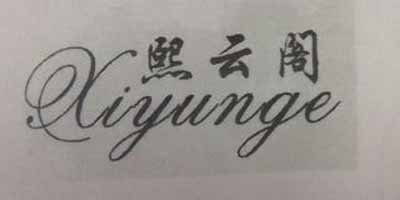 熙云阁
Xiyunge